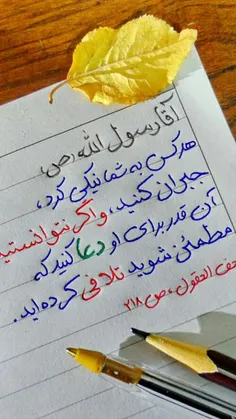 آقا رسول الله (ص)،
هر کس به شما نیکی کرد،
جبران کنید، و اگر نتوانستید
آن قدر برای او دعا کنید که
مطمئن شوید تلافی کرده‌اید.
حف العقول، ص ۲۱۸